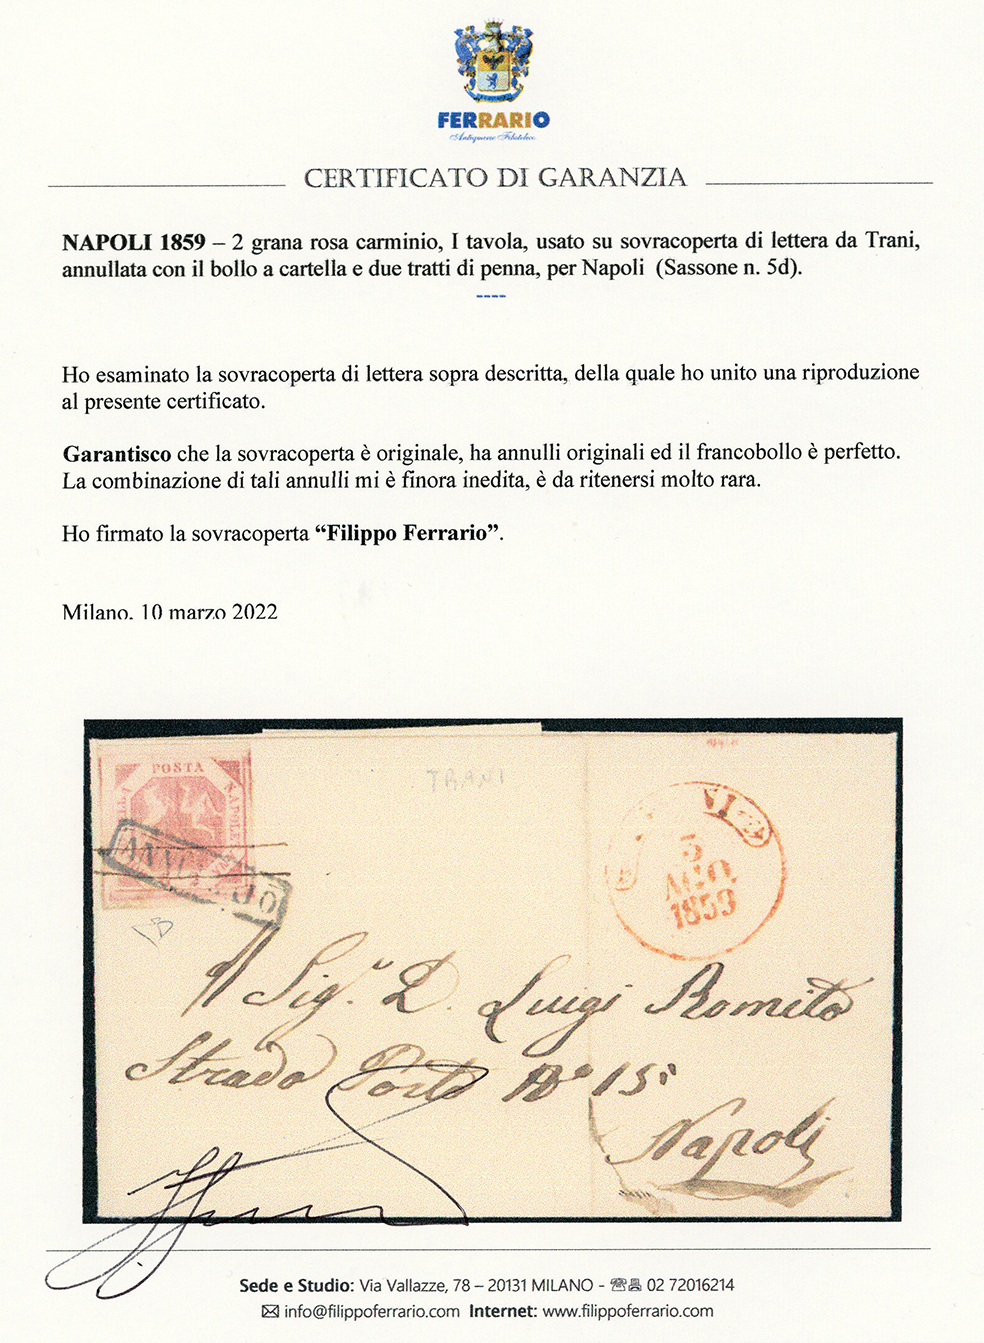 FERRARIO
Antiquario Filatelico
CERTIFICATO DI GARANZIA
NAPOLI 1859 – 2 grana rosa carminio, I tavola, usato su sovracoperta di lettera da Trani,
annullata con il bollo a cartella e due tratti di penna, per Napoli (Sassone n. 5d).
----
Ho esaminato la sovracoperta di lettera sopra descritta, della quale ho unito una riproduzione
al presente certificato.
Garantisco che la sovracoperta è originale, ha annulli originali ed il francobollo è perfetto.
La combinazione di tali annulli mi è finora inedita, è da ritenersi molto rara.
Ho firmato la sovracoperta “Filippo Ferrario”.
Milano, 10 marzo 2022
POSTA
NAPOLE
TRANI
5
AGO
1859
Sig.r D. Luigi Romito
Strada Porto No 15
Napoli
Sede e Studio: Via Vallazze, 78 – 20131 MILANO - 02 72016214
info@filippoferrario.com Internet: www.filippoferrario.com